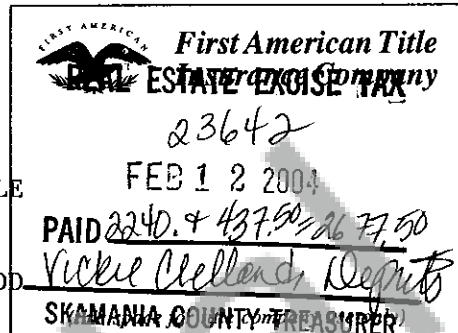 FIRST AMERICAN
First American Title
Insurance Company
REAL ESTATE EXCISE TAX
23642
FEB 12 2004
LE
PAID 2240. + 437.50 = 2677.50
OD Vickie Clelland, Deputy
SKAMANIA COUNTY TREASURER